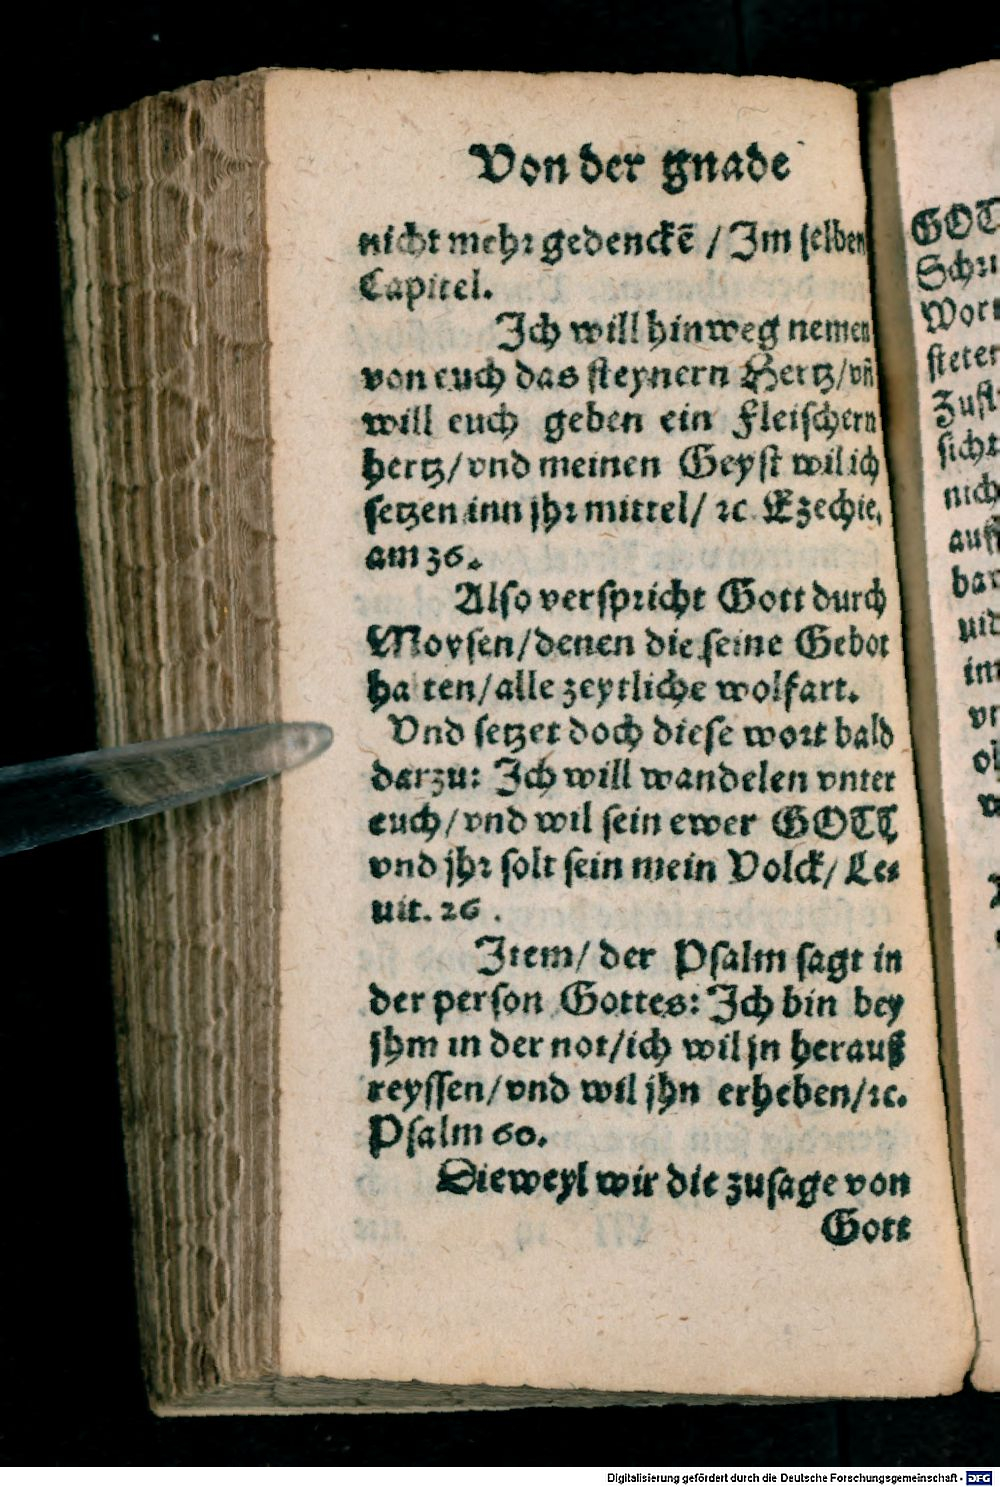 Von der gnade
nicht mehr gedenckẽ / Im selben
Capitel.
Ich will hinweg nemen
von euch das steynern Hertz/vñ
will euch geben ein Fleischern
hertz/vnd meinen Geyst wil ich
setzen inn jhr mittel/ ꝛc Ezechie.
am 36.
Also verspricht Gott durch
Moysen/denen die seine Gebot
halten/alle zeytliche wolfart.
Vnd setzet doch diese wort bald
darzu: Ich will wandelen vnter
euch/vnd wil sein ewer GOTT
vnd jhr solt sein mein Volck/ Le⸗
uit. 26 .
Item/ der Psalm sagt in
der person Gottes: Ich bin bey
jhm in der not/ich wil jn herauß
reyssen/vnd wil jhn erheben/ꝛc.
Psalm 60.
Dieweyl wir die zusage von
Gott
Digitalisierung gefördert durch die Deutsche Forschungsgemeinschaft - DFG